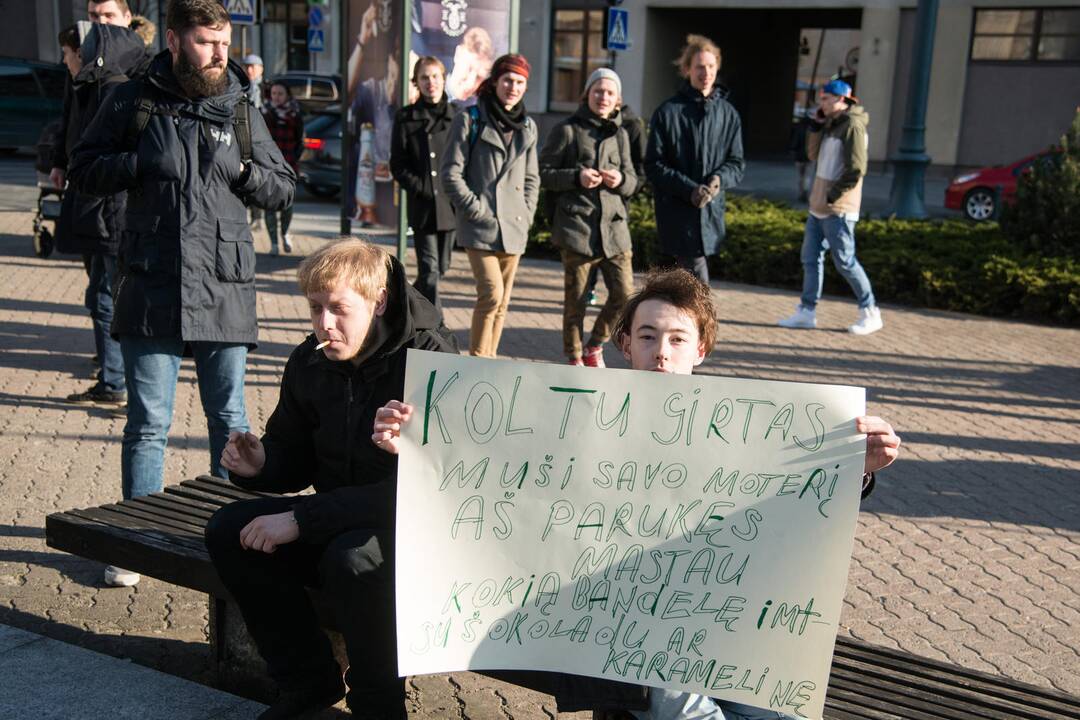 KOL TU GIRTAS
MUŠI SAVO MOTERĮ
AŠ PARUKĘS
MĄSTAU
KOKIĄ BANDELĘ IMT
SU ŠOKOLADU AR
KARAMELINĘ
HH